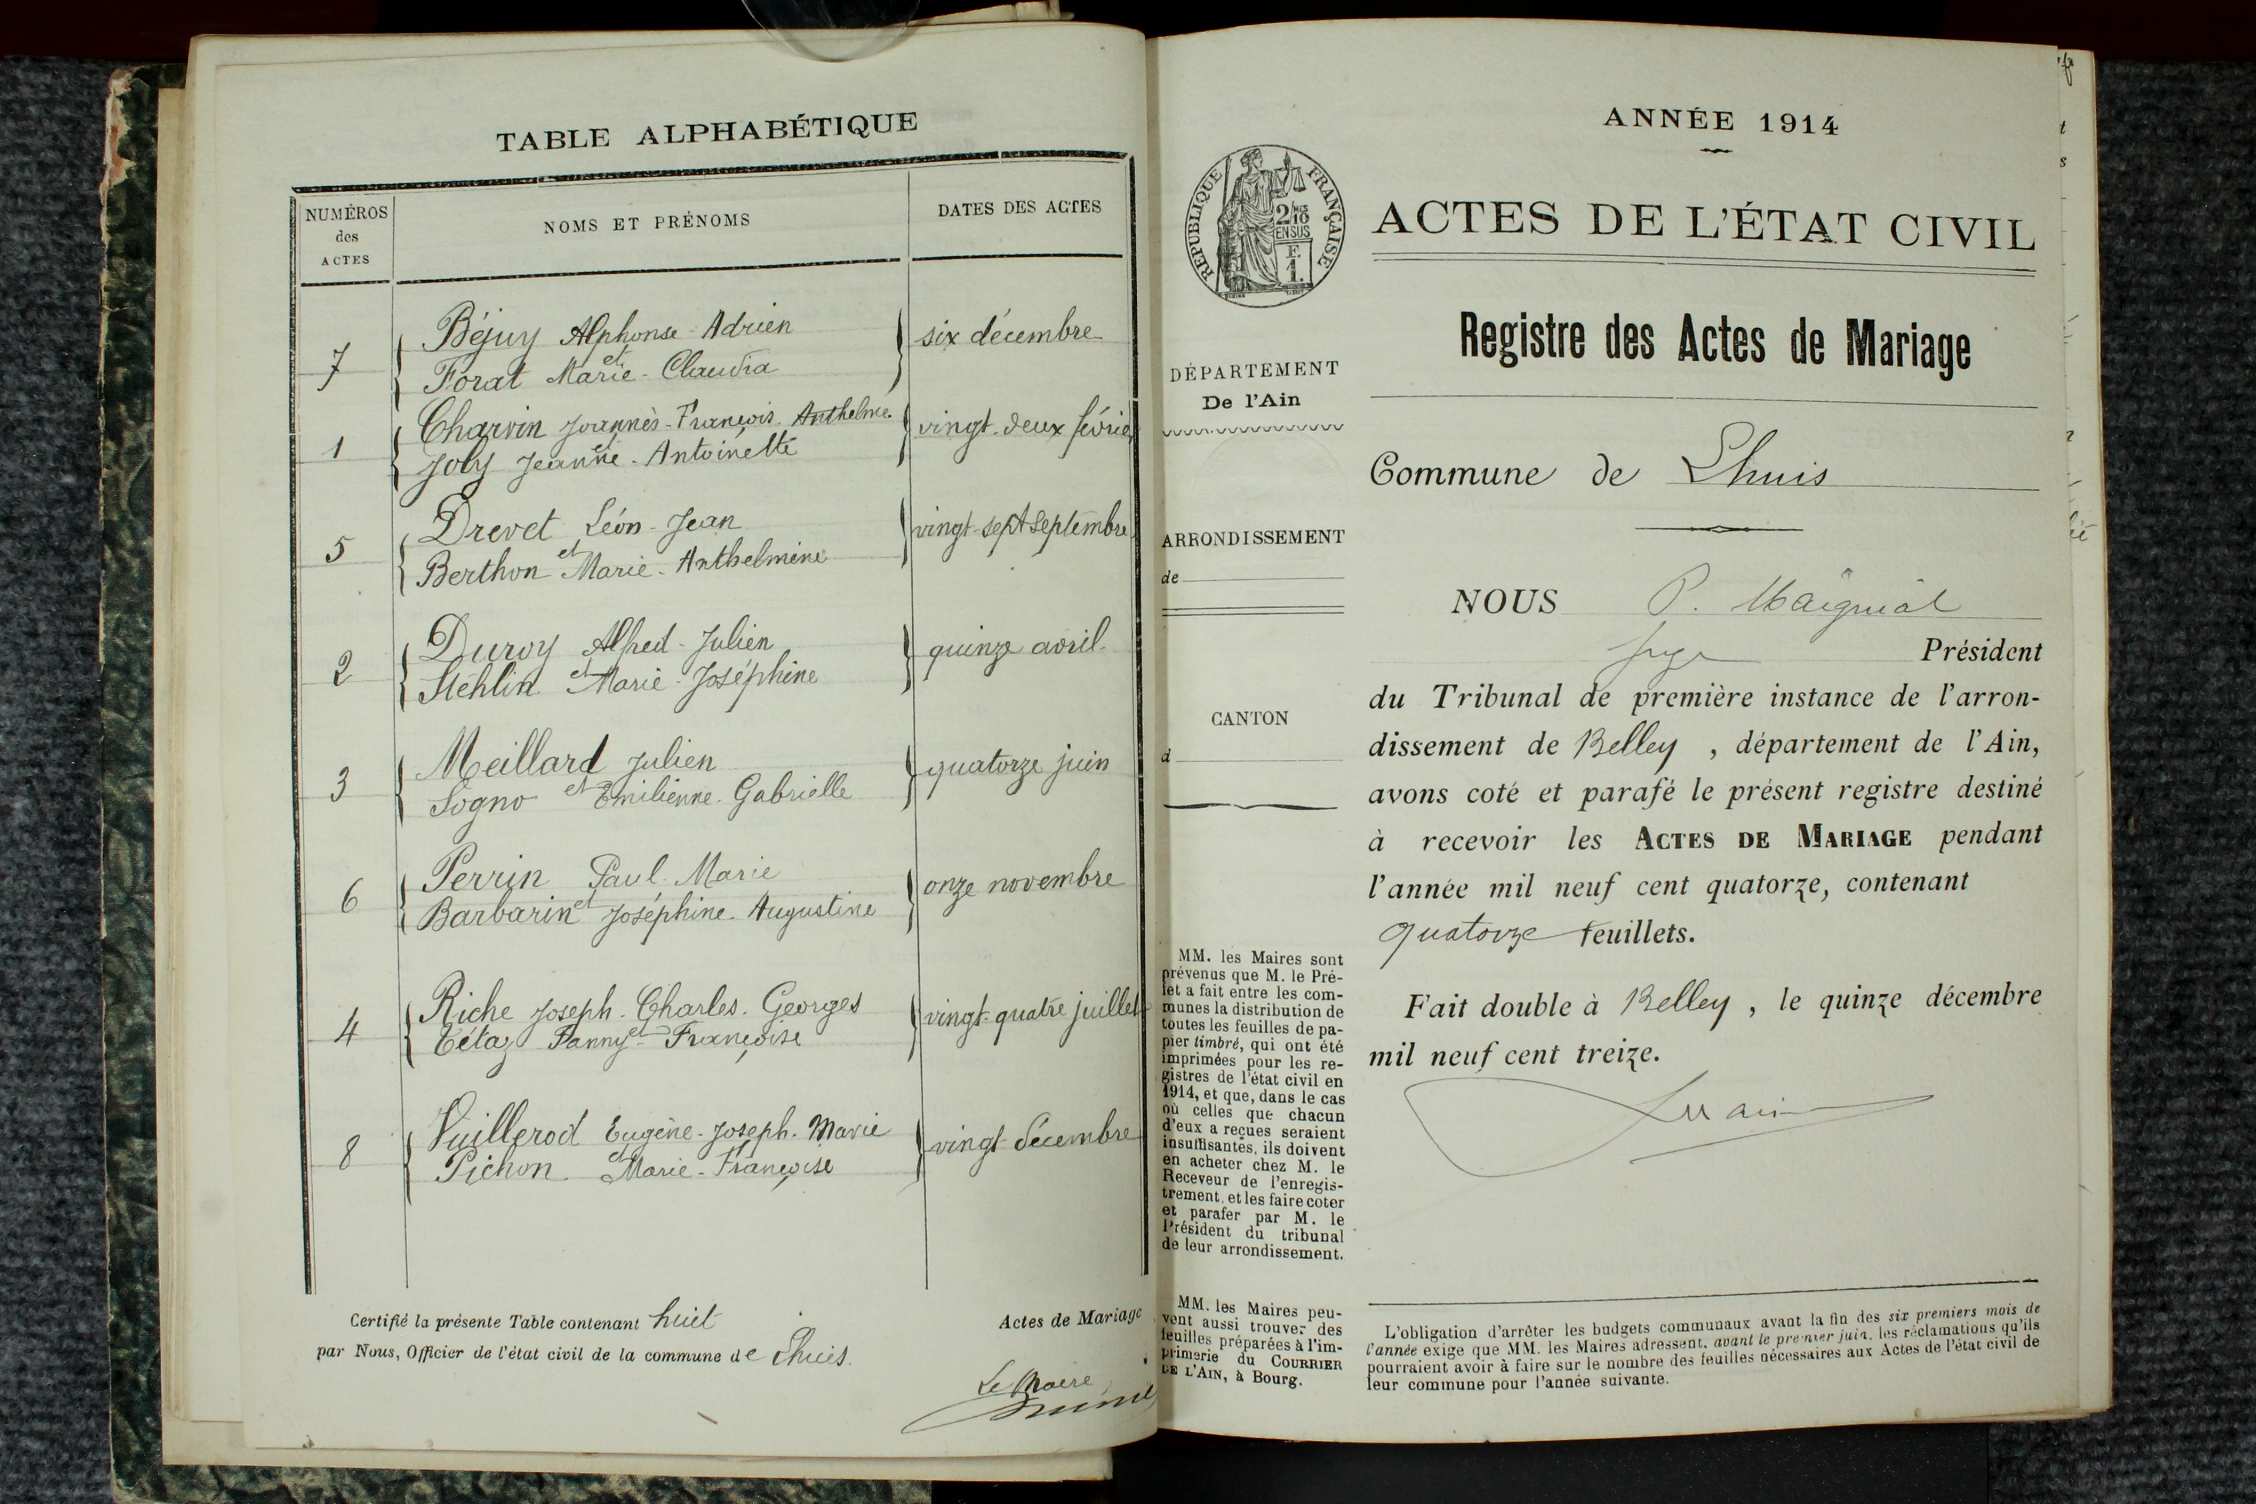 TABLE ALPHABÉTIQUE
NUMÉROS
des
ACTES
NOMS ET PRÉNOMS
DATES DES ACTES
7
Béjuy Alphonse-Adrien
et
Forat Marie-Claudia
six décembre
1
Charvin Joannès-François Anthelme
et
Joly Jeanne-Antoinette
vingt-deux février
5
Drevet Léon-Jean
et
Berthon Marie-Anthelmine
vingt-sept septembre
2
Duroy Alfred-Julien
et
Stehlin Marie-Joséphine
quinze avril
3
Meillard Julien
et
Sogno Emilienne-Gabrielle
quatorze juin
6
Perrin Paul-Marie
et
Barbarin Joséphine-Augustine
onze novembre
4
Riche Joseph-Charles-Georges
et
Tétaz Fanny-Françoise
vingt-quatre juillet
8
Vuillerod Eugène-Joseph-Marie
et
Pichon Marie-Françoise
vingt décembre
Certifié la présente Table contenant huit Actes de Mariage
par Nous, Officier de l'état civil de la commune de Lhuis.
Le Maire,
ANNÉE 1914
RÉPUBLIQUE FRANÇAISE
2/10
EN SUS
F
1.
ACTES DE L'ÉTAT CIVIL
Registre des Actes de Mariage
DÉPARTEMENT
De l'Ain
Commune de Lhuis
ARRONDISSEMENT
de
CANTON
d
NOUS P. Maignial
Juge Président
du Tribunal de première instance de l'arron-
dissement de Belley, département de l'Ain,
avons coté et parafé le présent registre destiné
à recevoir les ACTES DE MARIAGE pendant
l'année mil neuf cent quatorze, contenant
quatorze feuillets.
Fait double à Belley, le quinze décembre
mil neuf cent treize.
MM. les Maires sont
prévenus que M. le Pré-
fet a fait entre les com-
munes la distribution de
toutes les feuilles de pa-
pier timbré, qui ont été
imprimées pour les re-
gistres de l'état civil en
1914, et que, dans le cas
où celles que chacun
d'eux a reçues seraient
insuffisantes, ils doivent
en acheter chez M. le
Receveur de l'enregis-
trement, et les faire coter
et parafer par M. le
Président du tribunal
de leur arrondissement.
MM. les Maires peu-
vent aussi trouver des
feuilles préparées à l'im-
primerie du COURRIER
DE L'AIN, à Bourg.
L'obligation d'arrêter les budgets communaux avant la fin des six premiers mois de
l'année exige que MM. les Maires adressent, avant le premier juin, les réclamations qu'ils
pourraient avoir à faire sur le nombre des feuilles nécessaires aux Actes de l'état civil de
leur commune pour l'année suivante.